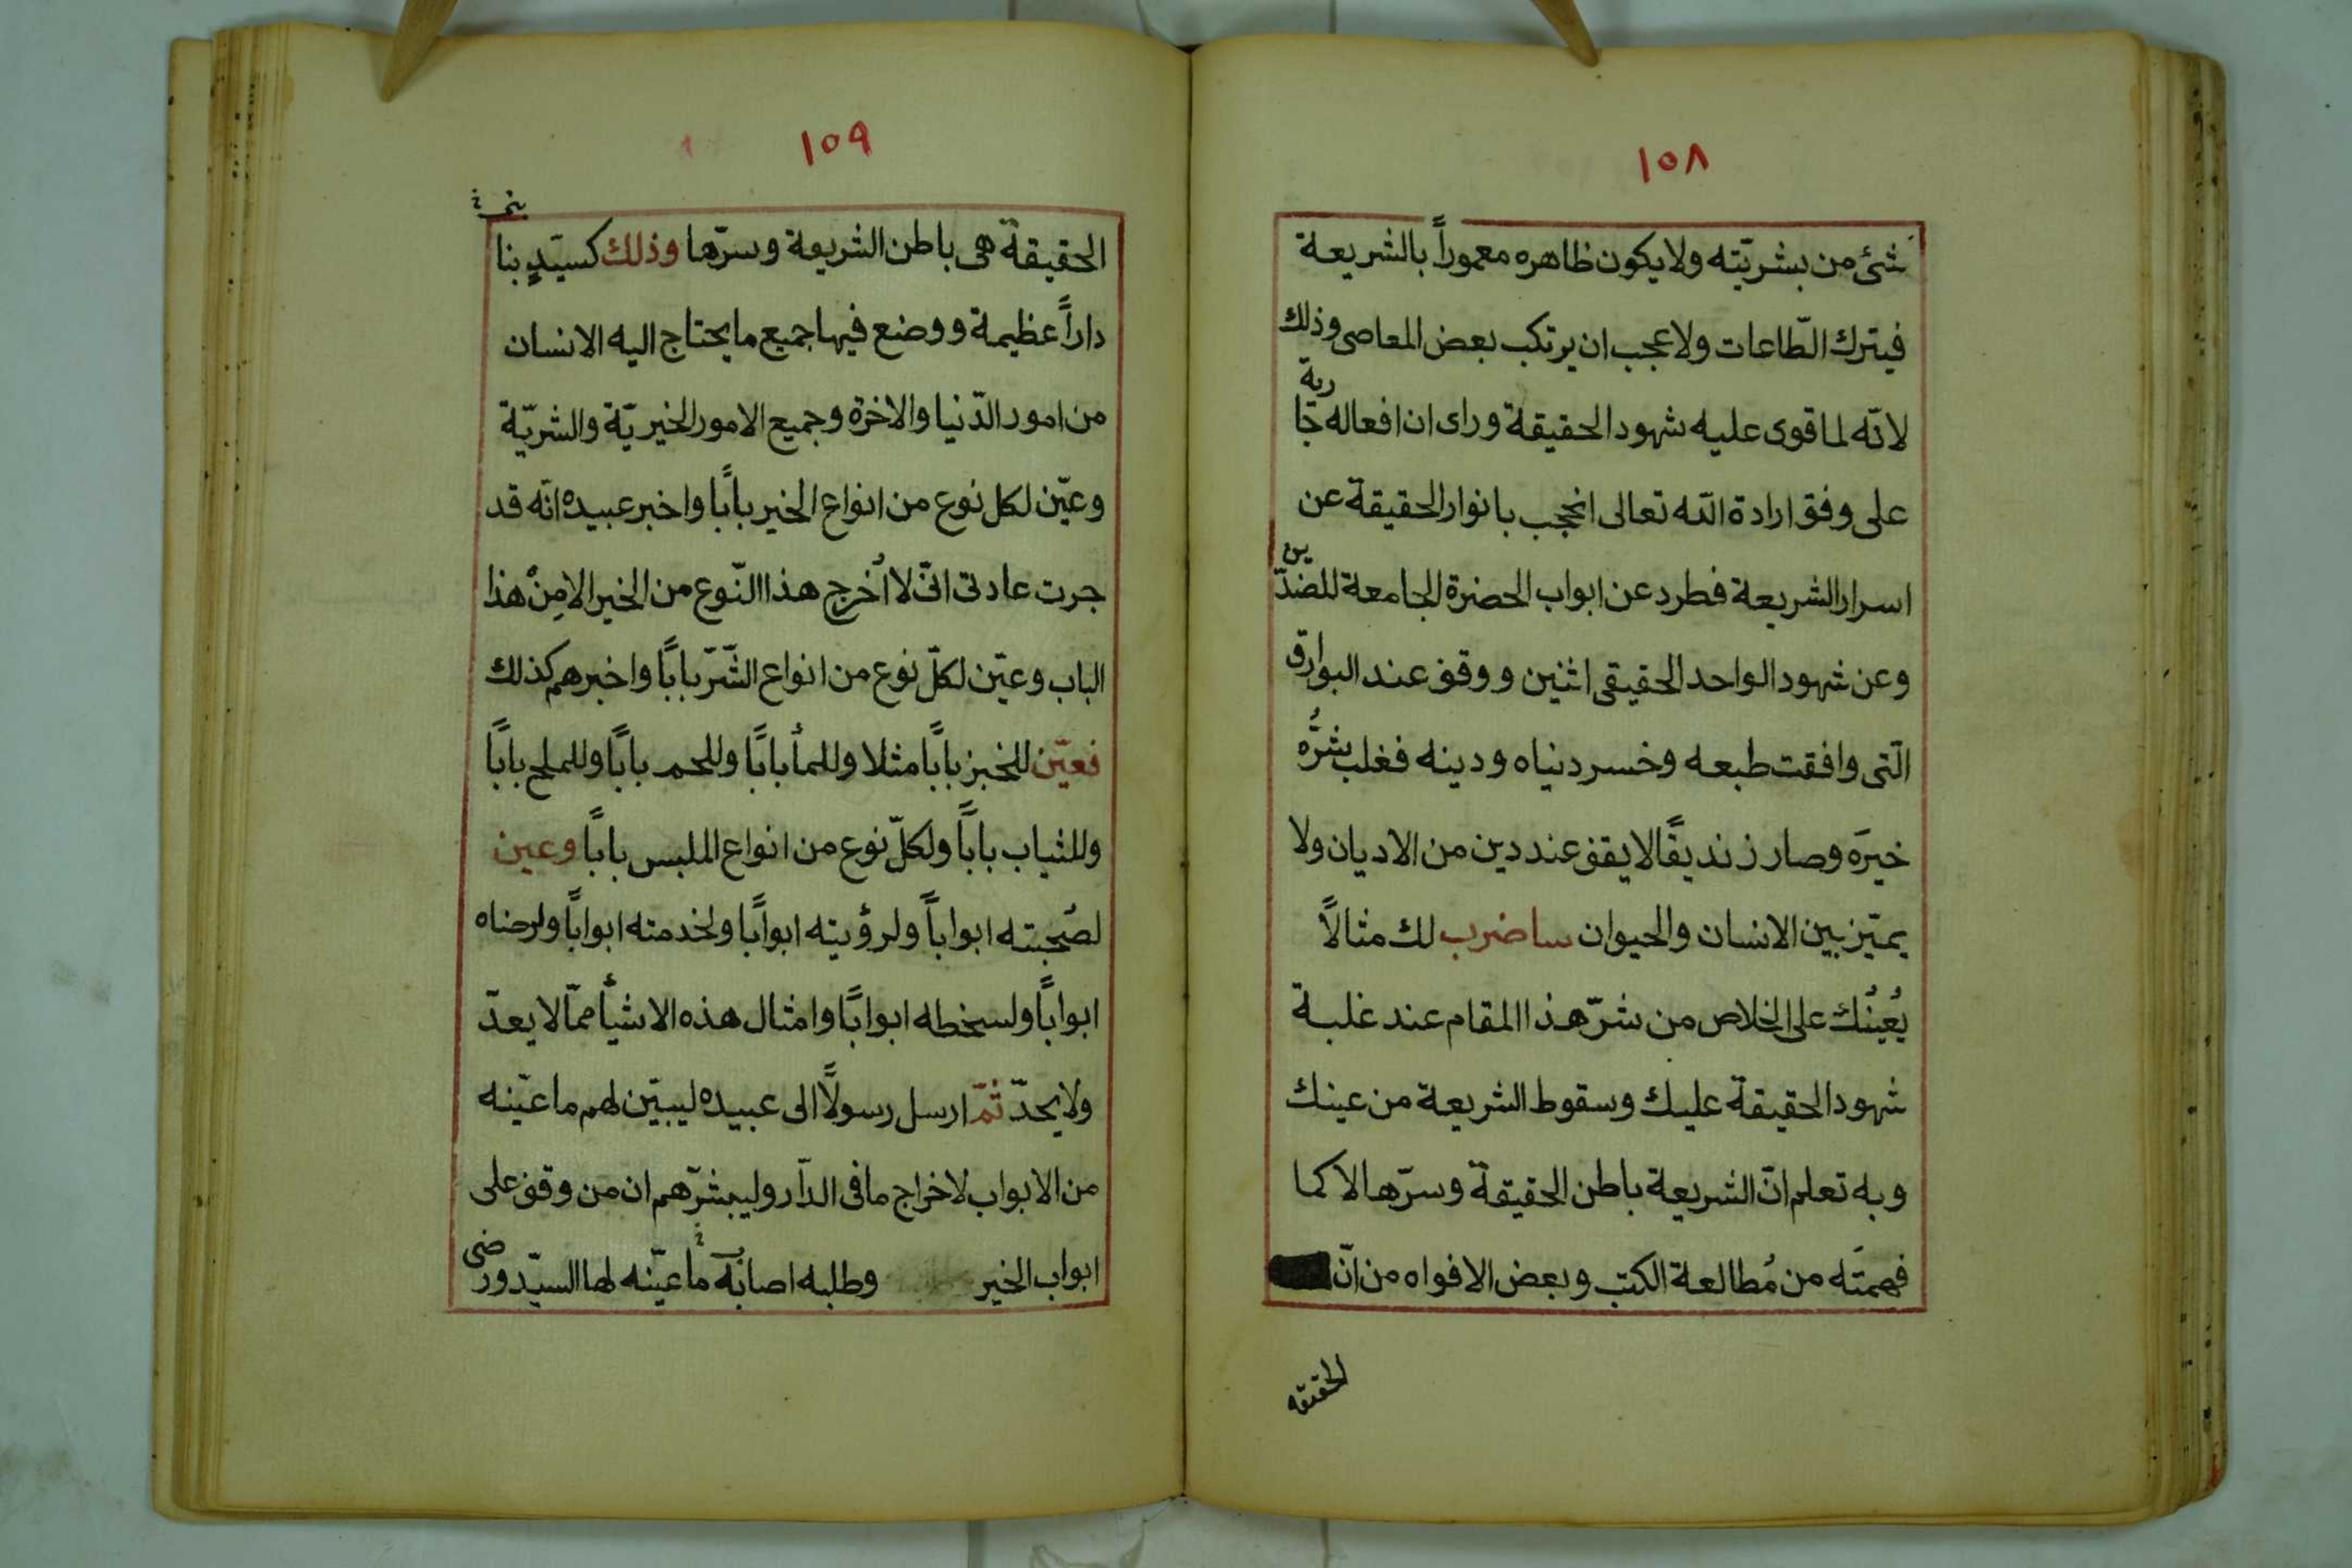 ١٥٨
شئ من بشريّته ولا يكون ظاهره معموراً بالشريعة
فيترك الطّاعات ولا عجب ان يرتكب بعض المعاصى وذلك
لانّه لما قوى عليه شهود الحقيقة وراى ان افعاله جارية
على وفق ارادة الله تعالى انحجب بانوار الحقيقة عن
اسرار الشريعة فطرد عن ابواب الحضرة الجامعة للضدّين
وعن شهود الواحد الحقيقى اثنين ووقف عند البوارق
الّتى وافقت طبعه وخسر دنياه ودينه فغلب شرُّه
خيرَه وصار زنديقًا لا يقف عند دين من الاديان ولا
يميّز بين الانسان والحيوان ساضرب لك مثالاً
يُعينُك على الخلاص من شرّ هذا المقام عند غلبة
شهود الحقيقة عليك وسقوط الشريعة من عينك
وبه تعلم انّ الشريعة باطن الحقيقة وسرّها لا كما
فهمتَه من مُطالعة الكتب وبعض الافواه من انّ
الحقيقه
١٥٩
الحقيقة هى باطن الشريعة وسرّها وذلك كسيّدٍ بنا
داراً عظيمة ووضع فيها جميع ما يحتاج اليه الانسان
من امور الدّنيا والاخرة وجميع الامور الخيريّة والشريّة
وعيّن لكل نوع من انواع الخير بابًا واخبر عبيده انّه قد
جرت عادتى انّى لا اُخرج هذا النّوع من الخير الا مِنْ هذا
الباب وعيّن لكلّ نوع من انواع الشّرّ بابًا واخبرهم كذلك
فعيّن للخبز بابًا مثلا وللمأ بابًا وللحم بابًا وللملح بابًا
وللثياب بابًا ولكلّ نوع من انواع الملبس بابًا وعين
لصُحبته ابواباً ولرؤيته ابوابًا ولخدمته ابوابًا ولرضاه
ابوابًا ولسخطه ابوابًا وامثال هذه الاشيأ ممّا لا يعدّ
ولا يحدّ ثمّ ارسل رسولاً الى عبيده ليبيّن لهم ما عيّنه
من الابواب لاخراج ما فى الدّار وليبشرّهم ان من وقف على
ابواب الخير وطلبه اصابَه ما عيّنه لها السيّد ورضى